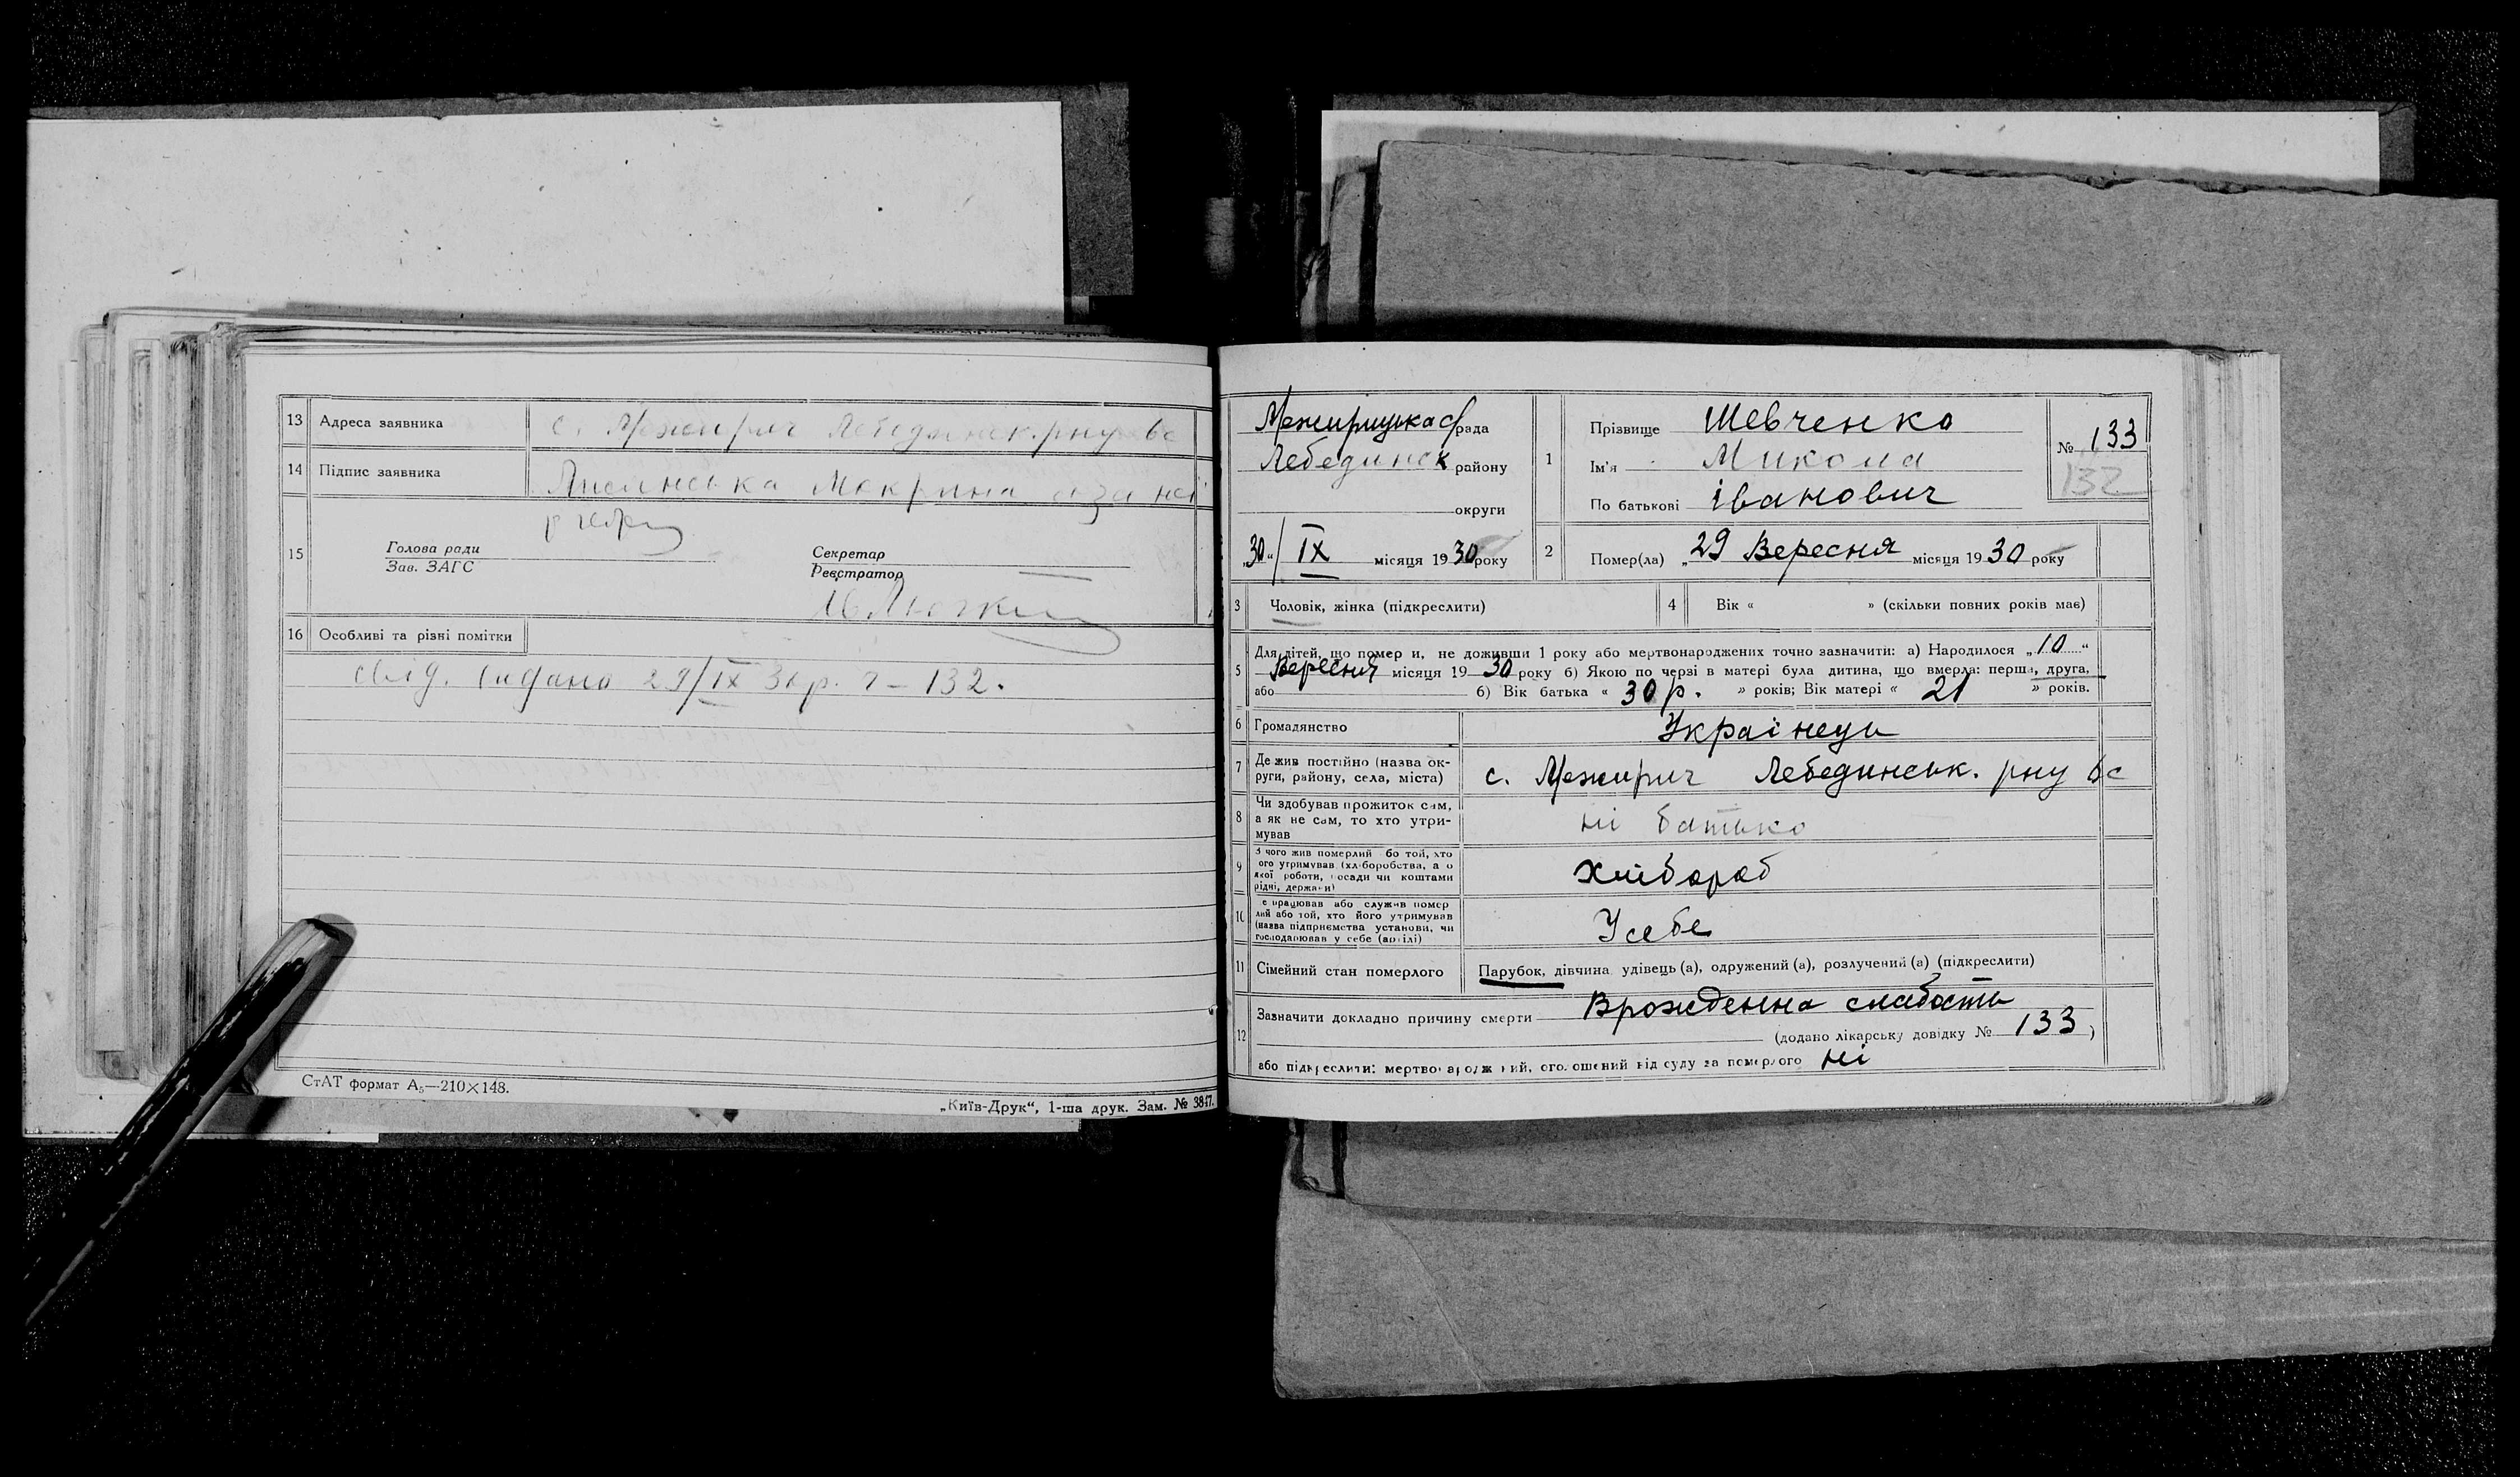 13 Адреса заявника с. Межирич Лебединск. рну вс
14 Підпис заявника Макрина а за неї
15
Голова ради
Зав. ЗАГС
Секретар
Реєстратор
16 Особливі та різні помітки
свід. видано 29/IX 30 р. 132.
СтАТ формат А₅—210×148.
„Київ-Друк“, 1-ша друк. Зам. № 3847.
Межирицька с/рада
Лебединск району
округи
„30“/IX місяця 1930 року
1 Прізвище Шевченко
Ім'я Микола
По батькові Іванович
№ 133
132
2 Помер(ла) „29 Вересня місяця 1930 року
3 Чоловік, жінка (підкреслити)
4 Вік « » (скільки повних років має)
5 Для дітей, що помер и, не доживши 1 року або мертвонароджених точно зазначити: а) Народилося „10“
Вересня місяця 1930 року б) Якою по черзі в матері була дитина, що вмерла: перша, друга,
або б) Вік батька « 30 р. » років; Вік матері « 21 » років.
6 Громадянство Українець
7 Де жив постійно (назва ок-
руги, району, села, міста) с. Межирич Лебединськ. рну вс
8 Чи здобував прожиток сам,
а як не сам, то хто утри-
мував ні батько
9 З чого жив померлий або той, хто
його утримував (хліборобства, а о
якої роботи, посади чи коштами
рідні, держави) Хлібороб
10 е працював або служив помер
лий або той, хто його утримував
(назва підприємства установи, чи
господарював у себе (артілі) У себе
11 Сімейний стан померлого Парубок, дівчина удівець (а), одружений (а), розлучений (а) (підкреслити)
12 Зазначити докладно причину смерти Врожденна слабость
(додано лікарську довідку № 133)
або підкреслити: мертвонароджений, оголошений від суду за померлого ні